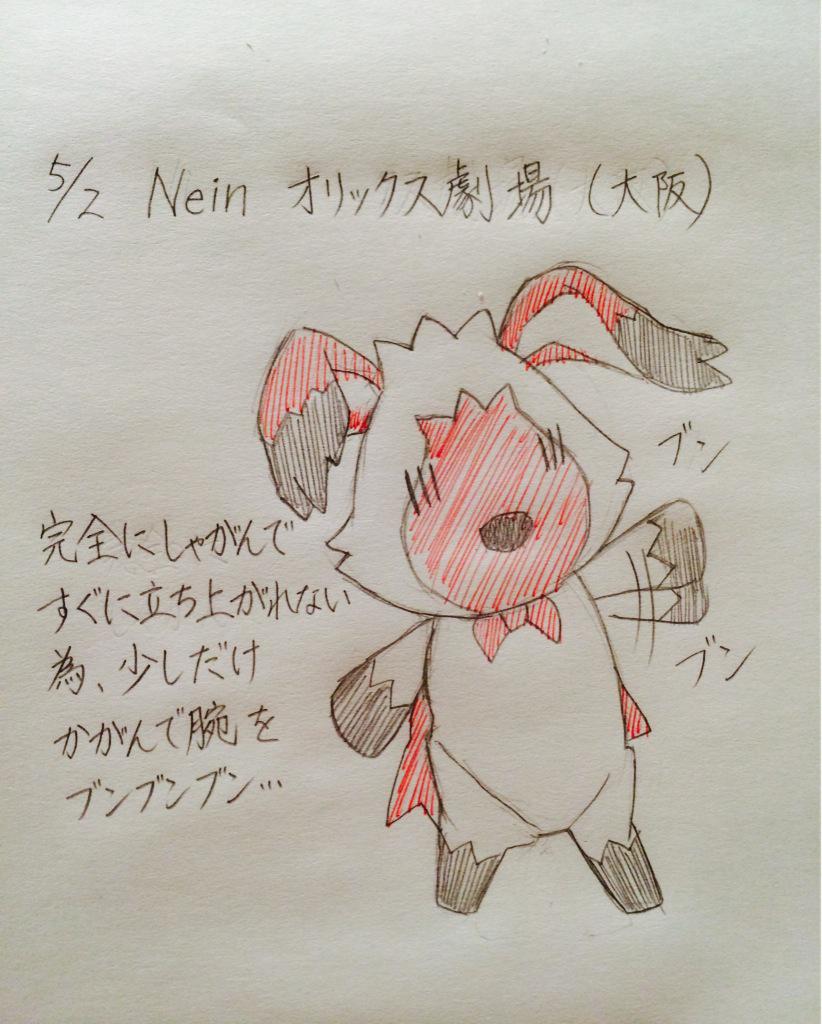 5/2 Nein オリックス劇場(大阪)
ブン
ブン
完全にしゃがんで
すぐに立ち上がれない
為、少しだけ
かがんで腕を
ブンブンブン…